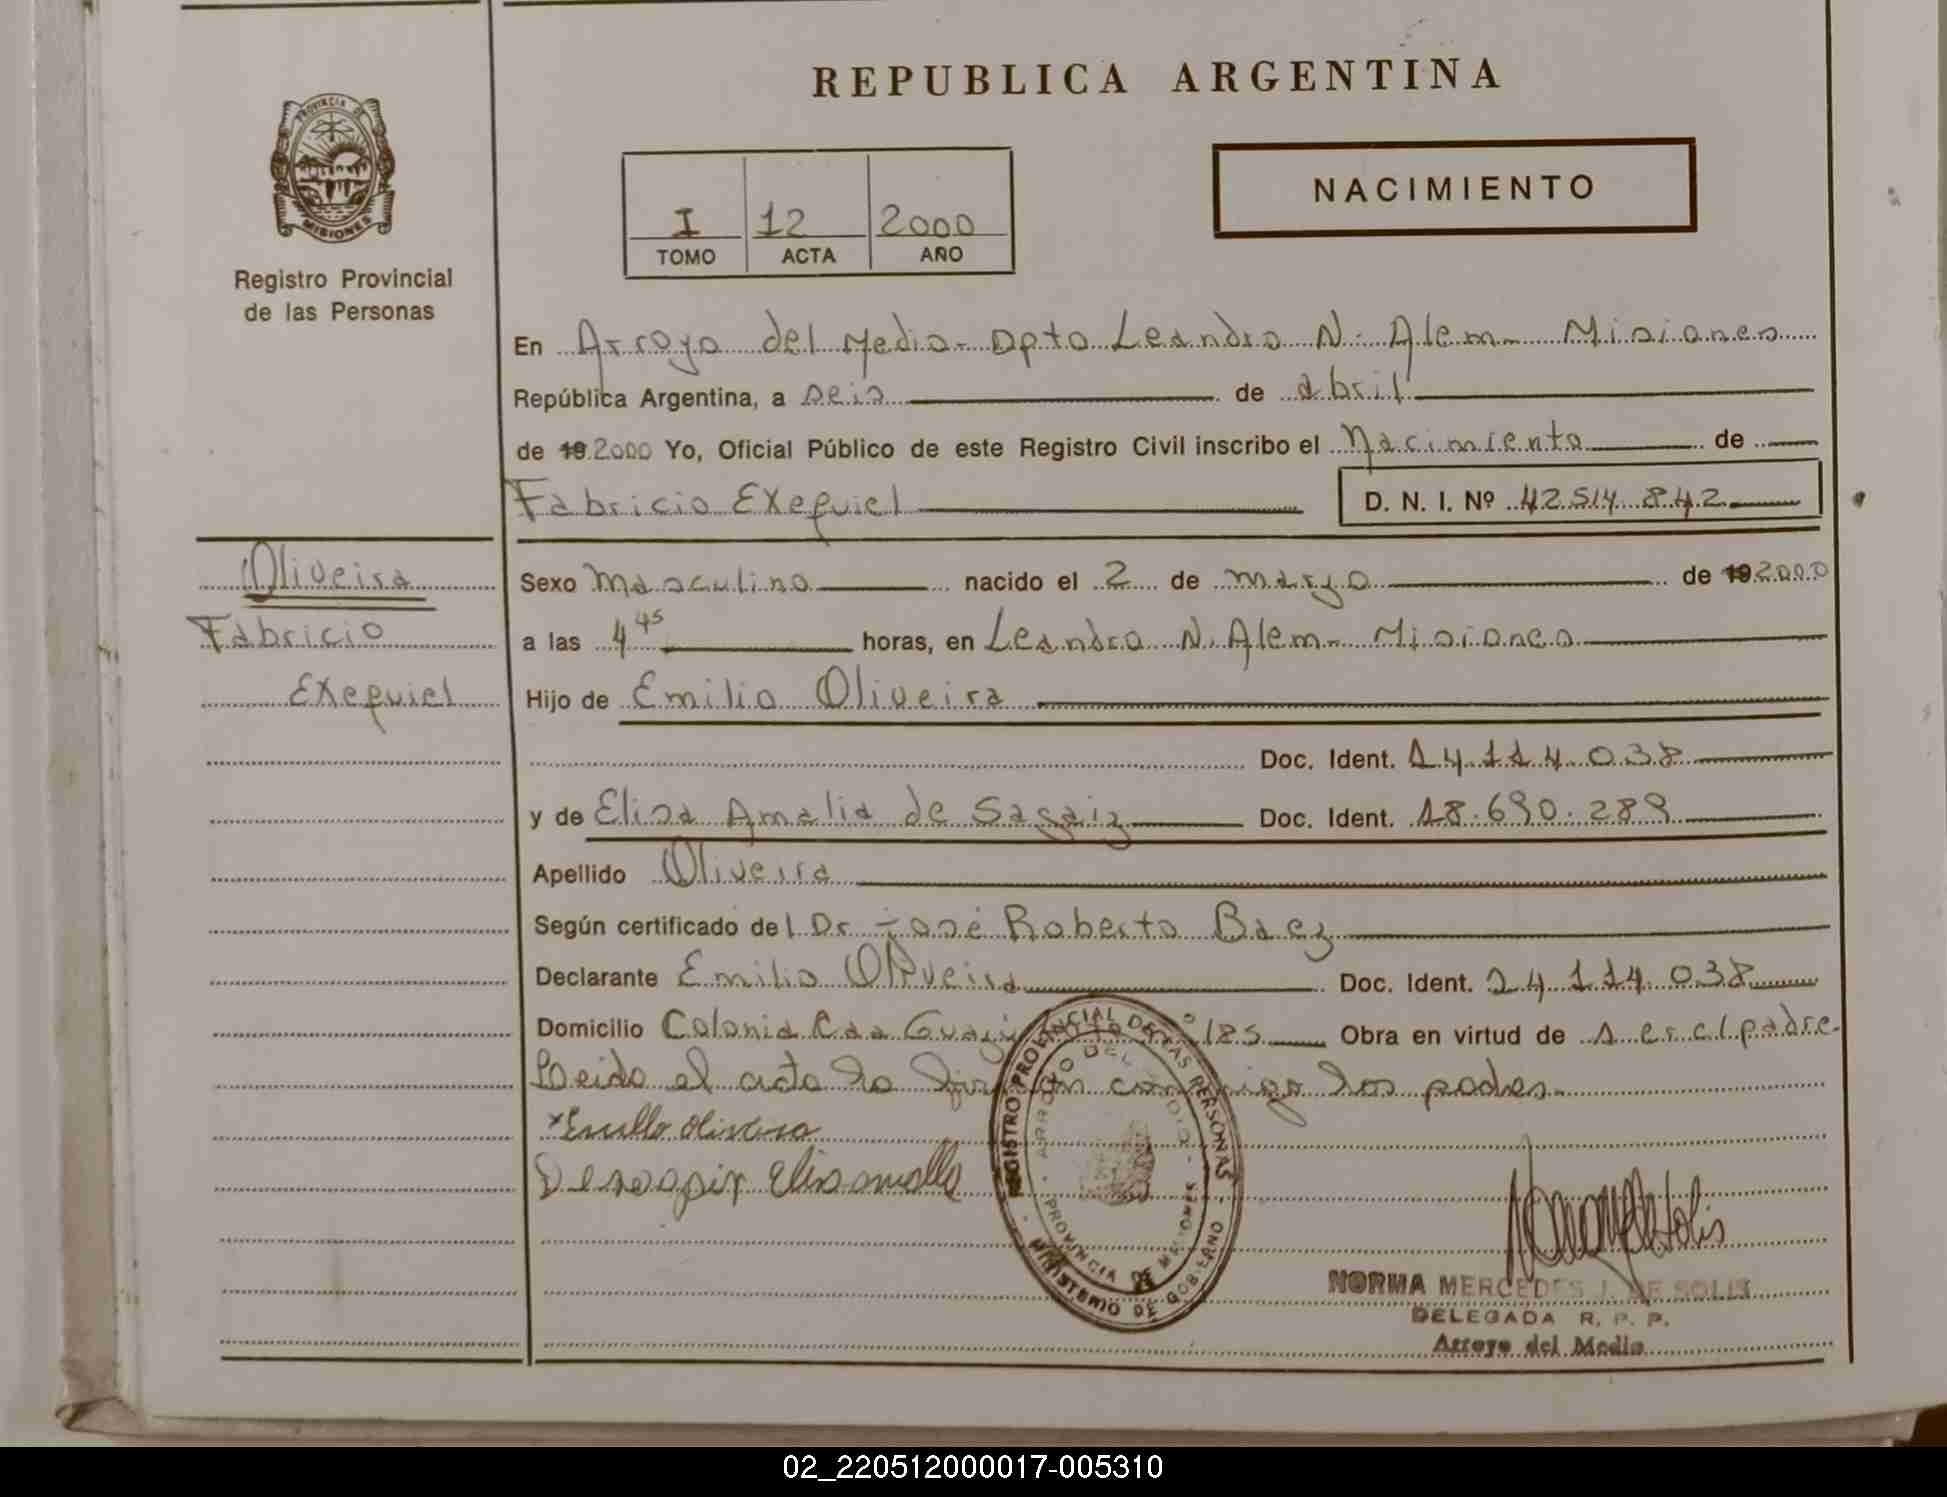 REPUBLICA ARGENTINA
PROVINCIA DE
MISIONES
Registro Provincial
de las Personas
I 12 2000
TOMO ACTA AÑO
NACIMIENTO
En Arroyo del Medio - Dpto Leandro N. Alem - Misiones
República Argentina, a seis de abril
de 19 2000 Yo, Oficial Público de este Registro Civil inscribo el Nacimiento de
Fabricio Exequiel D. N. I. Nº 42.514.842
Oliveira
Fabricio
Exequiel
Sexo Masculino nacido el 2 de marzo de 19 2000
a las 4 45 horas, en Leandro N. Alem - Misiones
Hijo de Emilio Oliveira
Doc. Ident. 24.114.038
y de Elisa Amalia de Doc. Ident. 18.690.289
Apellido Oliveira
Según certificado del Dr José Roberto Baez
Declarante Emilio Oliveira Doc. Ident. 24.114.038
Domicilio Colonia 185 Obra en virtud de ser el padre
Leida el acta la firman conmigo los padres.
Norma M de Solis
REGISTRO PROVINCIAL DE LAS PERSONAS
ARROYO DEL MEDIO - PROVINCIA DE MISIONES
MINISTERIO DE GOBIERNO
NORMA MERCEDES J. DE SOLIS
DELEGADA R. P. P.
Arroyo del Medio
02_220512000017-005310